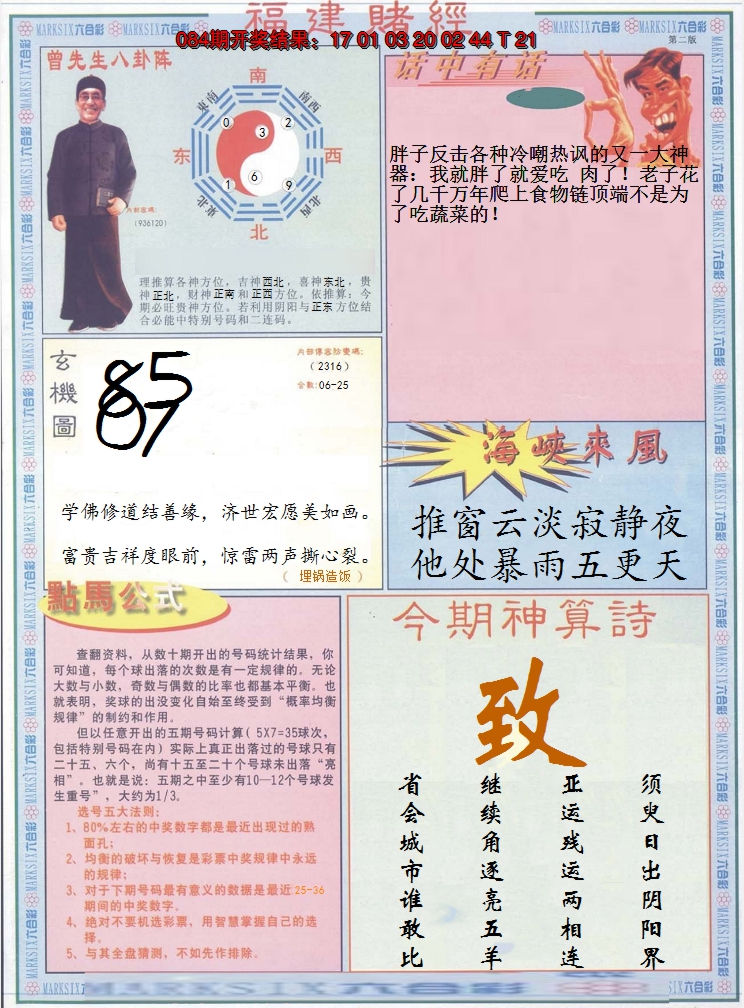 福建賭經
084期开奖结果：17 01 03 20 02 44 T 21
第二版
MARKSIX六合彩
曾先生八卦阵
南
東南
南西
0
2
3
东
西
6
1
9
東北
北西
北
內部密碼：
（936120）
理推算各神方位，吉神西北，喜神东北，贵
神正北，财神正南和正西方位。依推算：今
期必旺贵神方位。若利用阴阳与正东方位结
合必能中特别号码和二连码。
话中有话
胖子反击各种冷嘲热讽的又一大神
器：我就胖了就爱吃 肉了！老子花
了几千万年爬上食物链顶端不是为
了吃蔬菜的！
玄機圖
85
07
（2316）
合數：06-25
学佛修道结善缘，济世宏愿美如画。
富贵吉祥度眼前，惊雷两声撕心裂。
（ 埋锅造饭 ）
海峽來風
推窗云淡寂静夜
他处暴雨五更天
點馬公式
查翻资料，从数十期开出的号码统计结果，你
可知道，每个球出落的次数是有一定规律的。无论
大数与小数，奇数与偶数的比率也都基本平衡。也
就表明，奖球的出没变化自始至终受到“概率均衡
规律”的制约和作用。
但以任意开出的五期号码计算（5X7=35球次，
包括特别号码在内）实际上真正出落过的号球只有
二十五、六个，尚有十五至二十个号球未出落“亮
相”。也就是说：五期之中至少有10—12个号球发
生重号”，大约为1/3。
选号五大法则：
1、80%左右的中奖数字都是最近出现过的熟
面孔；
2、均衡的破坏与恢复是彩票中奖规律中永远
的规律；
3、对于下期号码最有意义的数据是最近25-36
期间的中奖数字。
4、绝对不要机选彩票，用智慧掌握自己的选
择。
5、与其全盘猜测，不如先作排除。
今期神算詩
致
须臾日出阴阳界
亚运残运两相连
继续角逐亮五羊
省会城市谁敢比